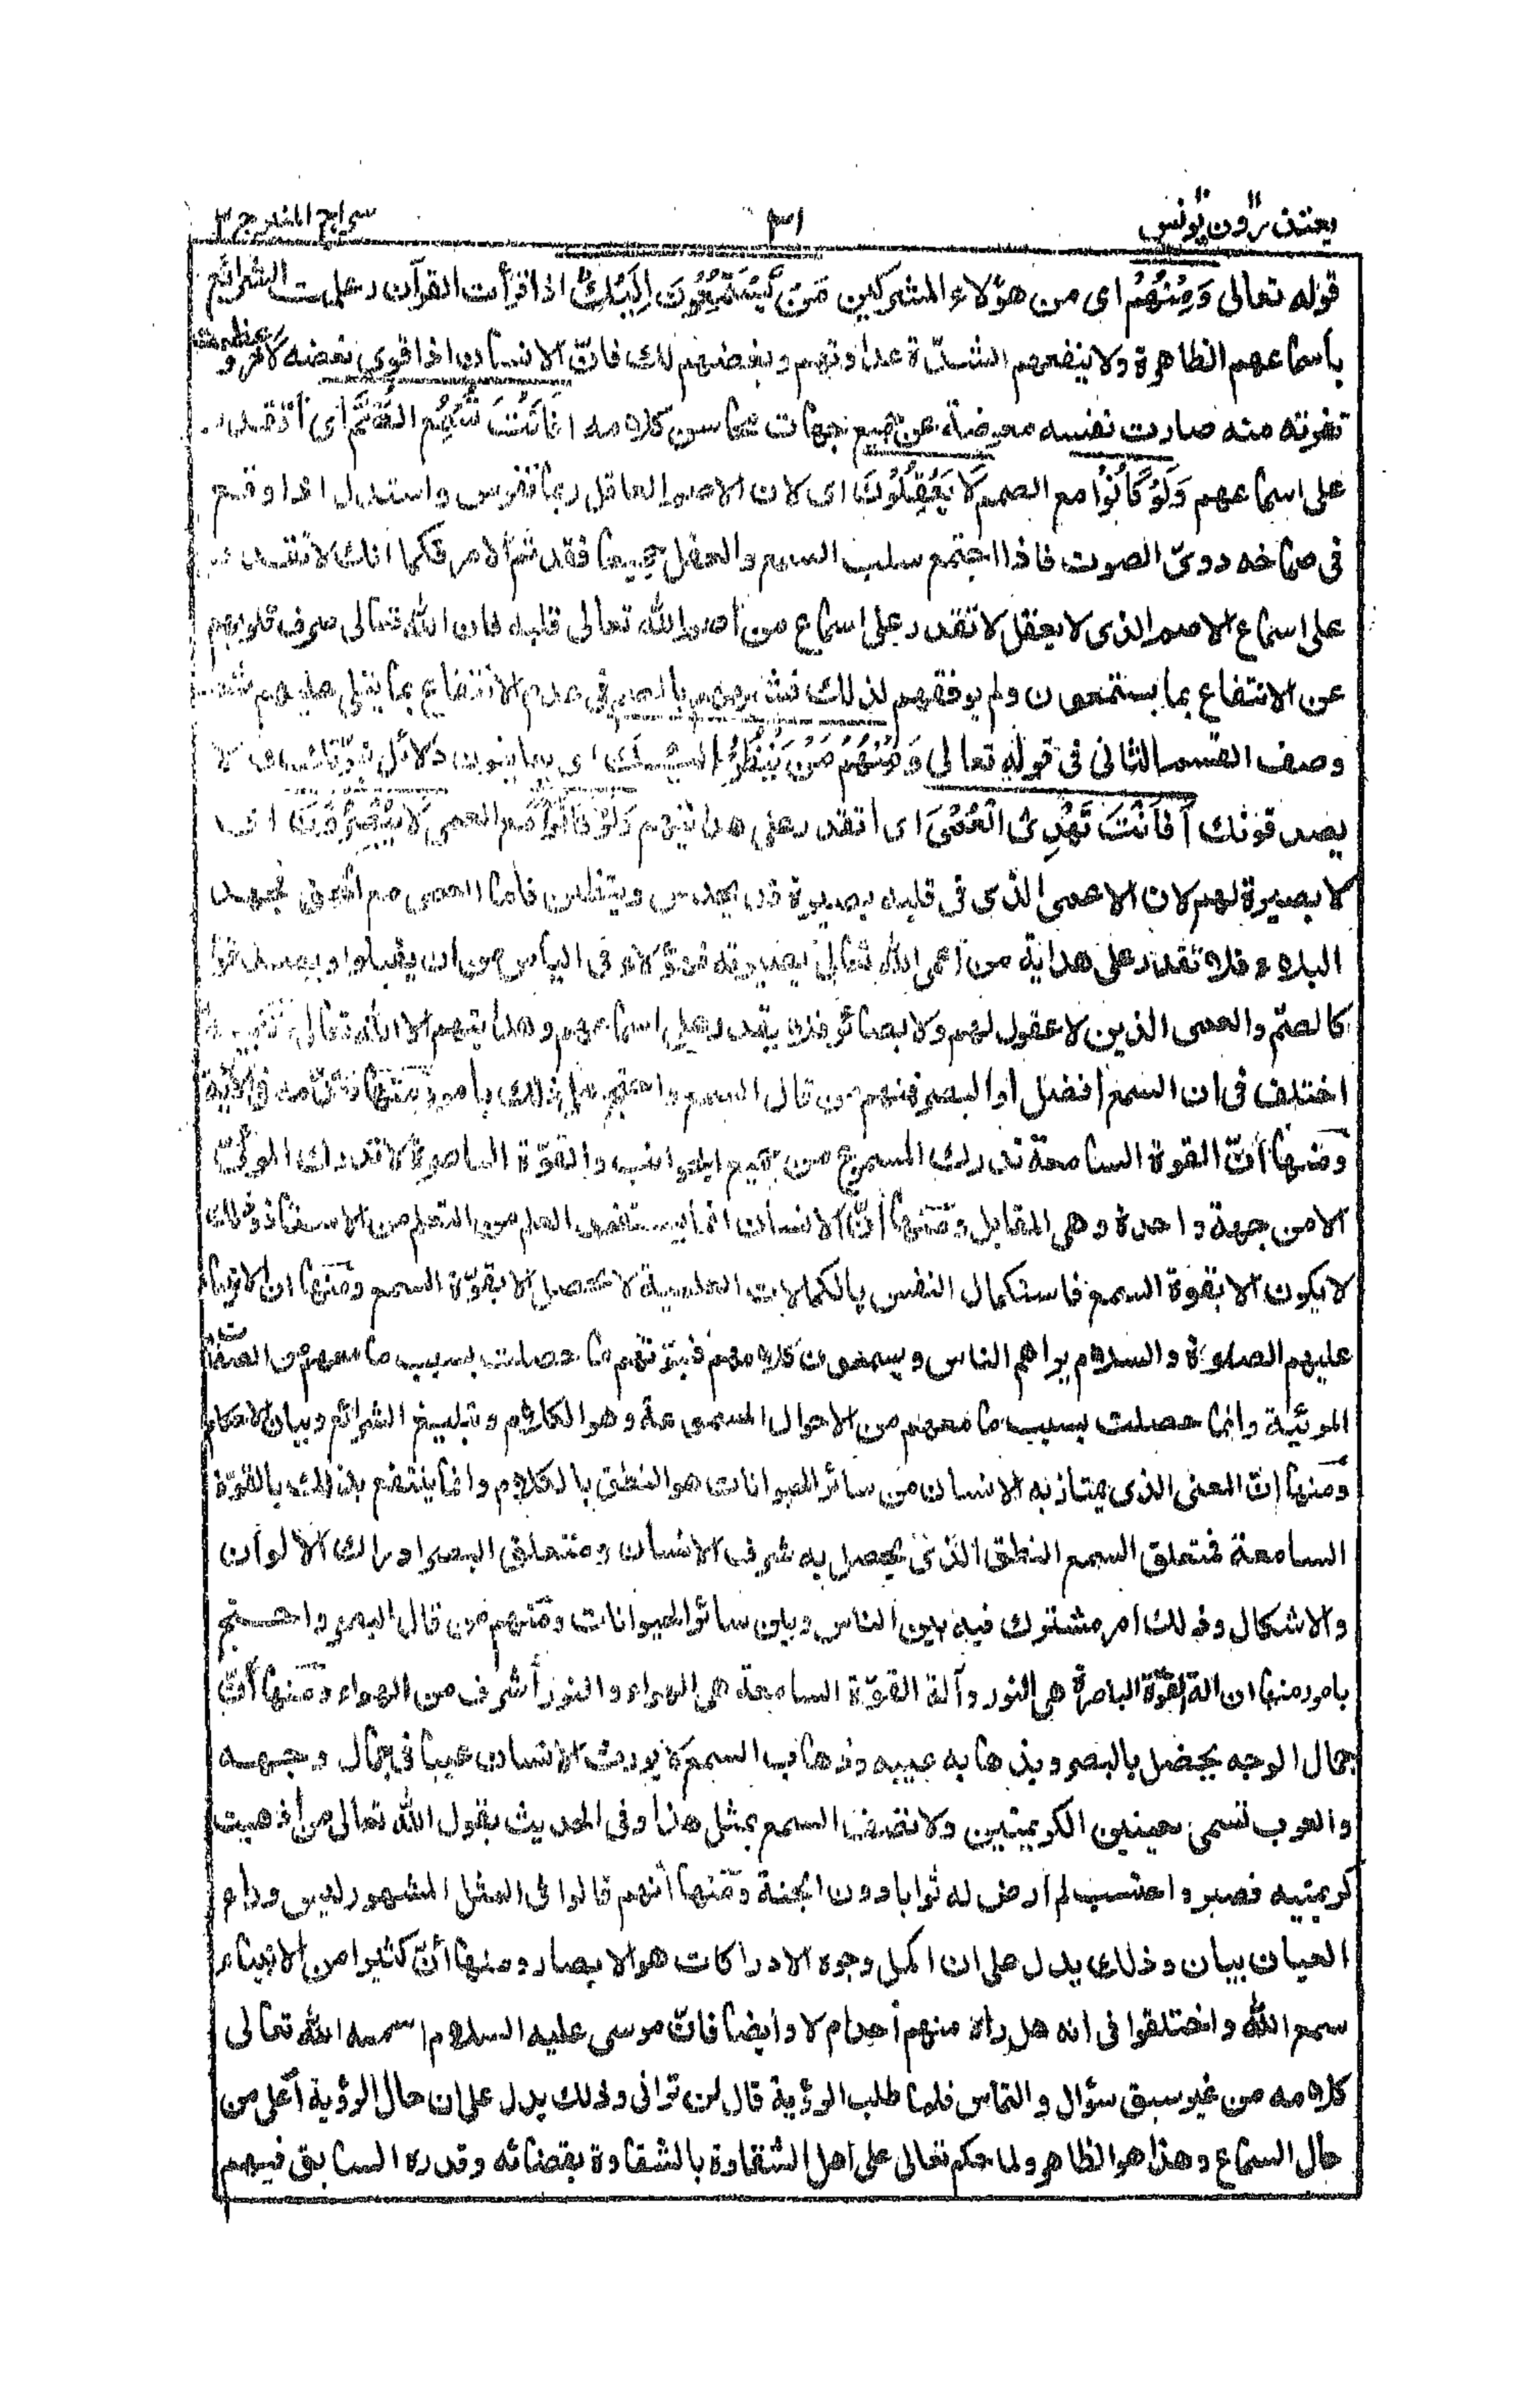 يعتذرون يونس
٣١
سراج المنير ج ٢
قوله تعالى وَمِنْهُمْ اى من هؤلاء المشركين مَنْ يَّسْتَمِعُوْنَ اِلَيْكَ اذا قرأت القرآن وعلمت الشرائع
بأسماعهم الظاهرة ولا ينفعهم الشدّة عداوتهم وبغضهم لك فانّ الانسان اذا قوى بغضه لآخر و عظمت
نفرته منه صارت نفسه معرضة عن جميع جهات محاسن كلامه اَفَاَنْتَ تُسْمِعُ الصُّمَّ أى أتقدر
على اسماعهم وَلَوْ كَانُوْا مع الصمم لَا يَعْقِلُوْنَ اى لان الاصم العاقل ربما تفرس واستدل اذا وقع
فى صماخه دوىّ الصوت فاذا اجتمع سلب السمع والعقل جميعا فقد تم الامر فكما انك لا تقدر
على اسماع الاصم الذى لا يعقل لا تقدر على اسماع من أصم الله تعالى قلبه فان الله تعالى صرف قلوبهم
عن الانتفاع بما يستمعون ولم يوفقهم لذلك فشبههم بالصم فى عدم الانتفاع بما يتلى عليهم ثم
وصف القسم الثانى فى قوله تعالى وَمِنْهُمْ مَنْ يَّنْظُرُ اِلَيْكَ اى يعاينون دلائل نبوّتك لا
يصدقونك اَفَاَنْتَ تَهْدِى الْعُمْىَ اى أتقدر على هدايتهم وَلَوْ كَانُوْا مع العمى لَا يُبْصِرُوْنَ اى
لا بصيرة لهم لان الاعمى الذى فى قلبه بصيرة قد يحدس ويتظنن فاما العمى مع الحمق فجهد
البلاء فلا تقدر على هداية من أعمى الله تعالى بصيرته فهؤلاء فى اليأس من ان يقبلوا ويصدقوا
كالصمّ والعمى الذين لا عقول لهم ولا بصائر فلا يقدر على اسماعهم وهدايتهم الا الله تعالى تنبيه
اختلف فى ان السمع أفضل أو البصر فمنهم من قال السمع واحتج على ذلك بأمور منها تقدّمه فى الآية
ومنها أنّ القوة السامعة تدرك المسموع من جميع الجوانب والقوّة الباصرة لا تدرك المرئىّ
الا من جهة واحدة وهى المقابل ومنها أنّ الانسان انما يستفيد العلم من التعلم من الاستاذ وذلك
لا يكون الا بقوة السمع فاستكمال النفس بالكمالات العلمية لا يحصل الا بقوّة السمع ومنها ان الانبياء
عليهم الصلوة والسلام يراهم الناس ويسمعون كلامهم فنبوّتهم ما حصلت بسبب ما معهم من الصفات
المرئيّة وانما حصلت بسبب ما معهم من الاحوال المسموعة وهو الكلام وتبليغ الشرائع وبيان الاحكام
ومنها انّ المعنى الذى يمتاز به الانسان من سائر الحيوانات هو النطق بالكلام وانما ينتفع بذلك بالقوّة
السامعة فمتعلق السمع النطق الذى يحصل به شرف الانسان ومتعلق البصر ادراك الالوان
والاشكال وذلك امر مشترك فيه بين الناس وبين سائر الحيوانات ومنهم من قال البصر واحتج
بامور منها ان الة القوّة الباصرة هى النور وآلة القوّة السامعة هى الهواء والنور أشرف من الهواء ومنها أنّ
جمال الوجه يحصل بالبصر وبذهابه عيبه وذهاب السمع لا يورث الانسان عيبا فى جمال وجهه
والعرب تسمى العينين الكريمتين ولا تصف السمع بمثل هذا وفى الحديث يقول الله تعالى من أذهبت
كريمتيه فصبر واحتسب لم أرض له ثوابا دون الجنة ومنها أنهم قالوا فى المثل المشهور ليس وراء
العيان بيان وذلك يدل على ان اكمل وجوه الادراكات هو الابصار ومنها أنّ كثيرا من الانبياء
سمع الله واختلفوا فى انه هل راه منهم أحد ام لا وأيضا فانّ موسى عليه السلام اسمعه الله تعالى
كلامه من غير سبق سؤال والتماس فلما طلب الرؤية قال لن ترانى وذلك يدل على ان حال الرؤية أعلى من
حال السماع وهذا هو الظاهر ولما حكم تعالى على اهل الشقاوة بالشقاوة بقضائه وقدره السابق فيهم